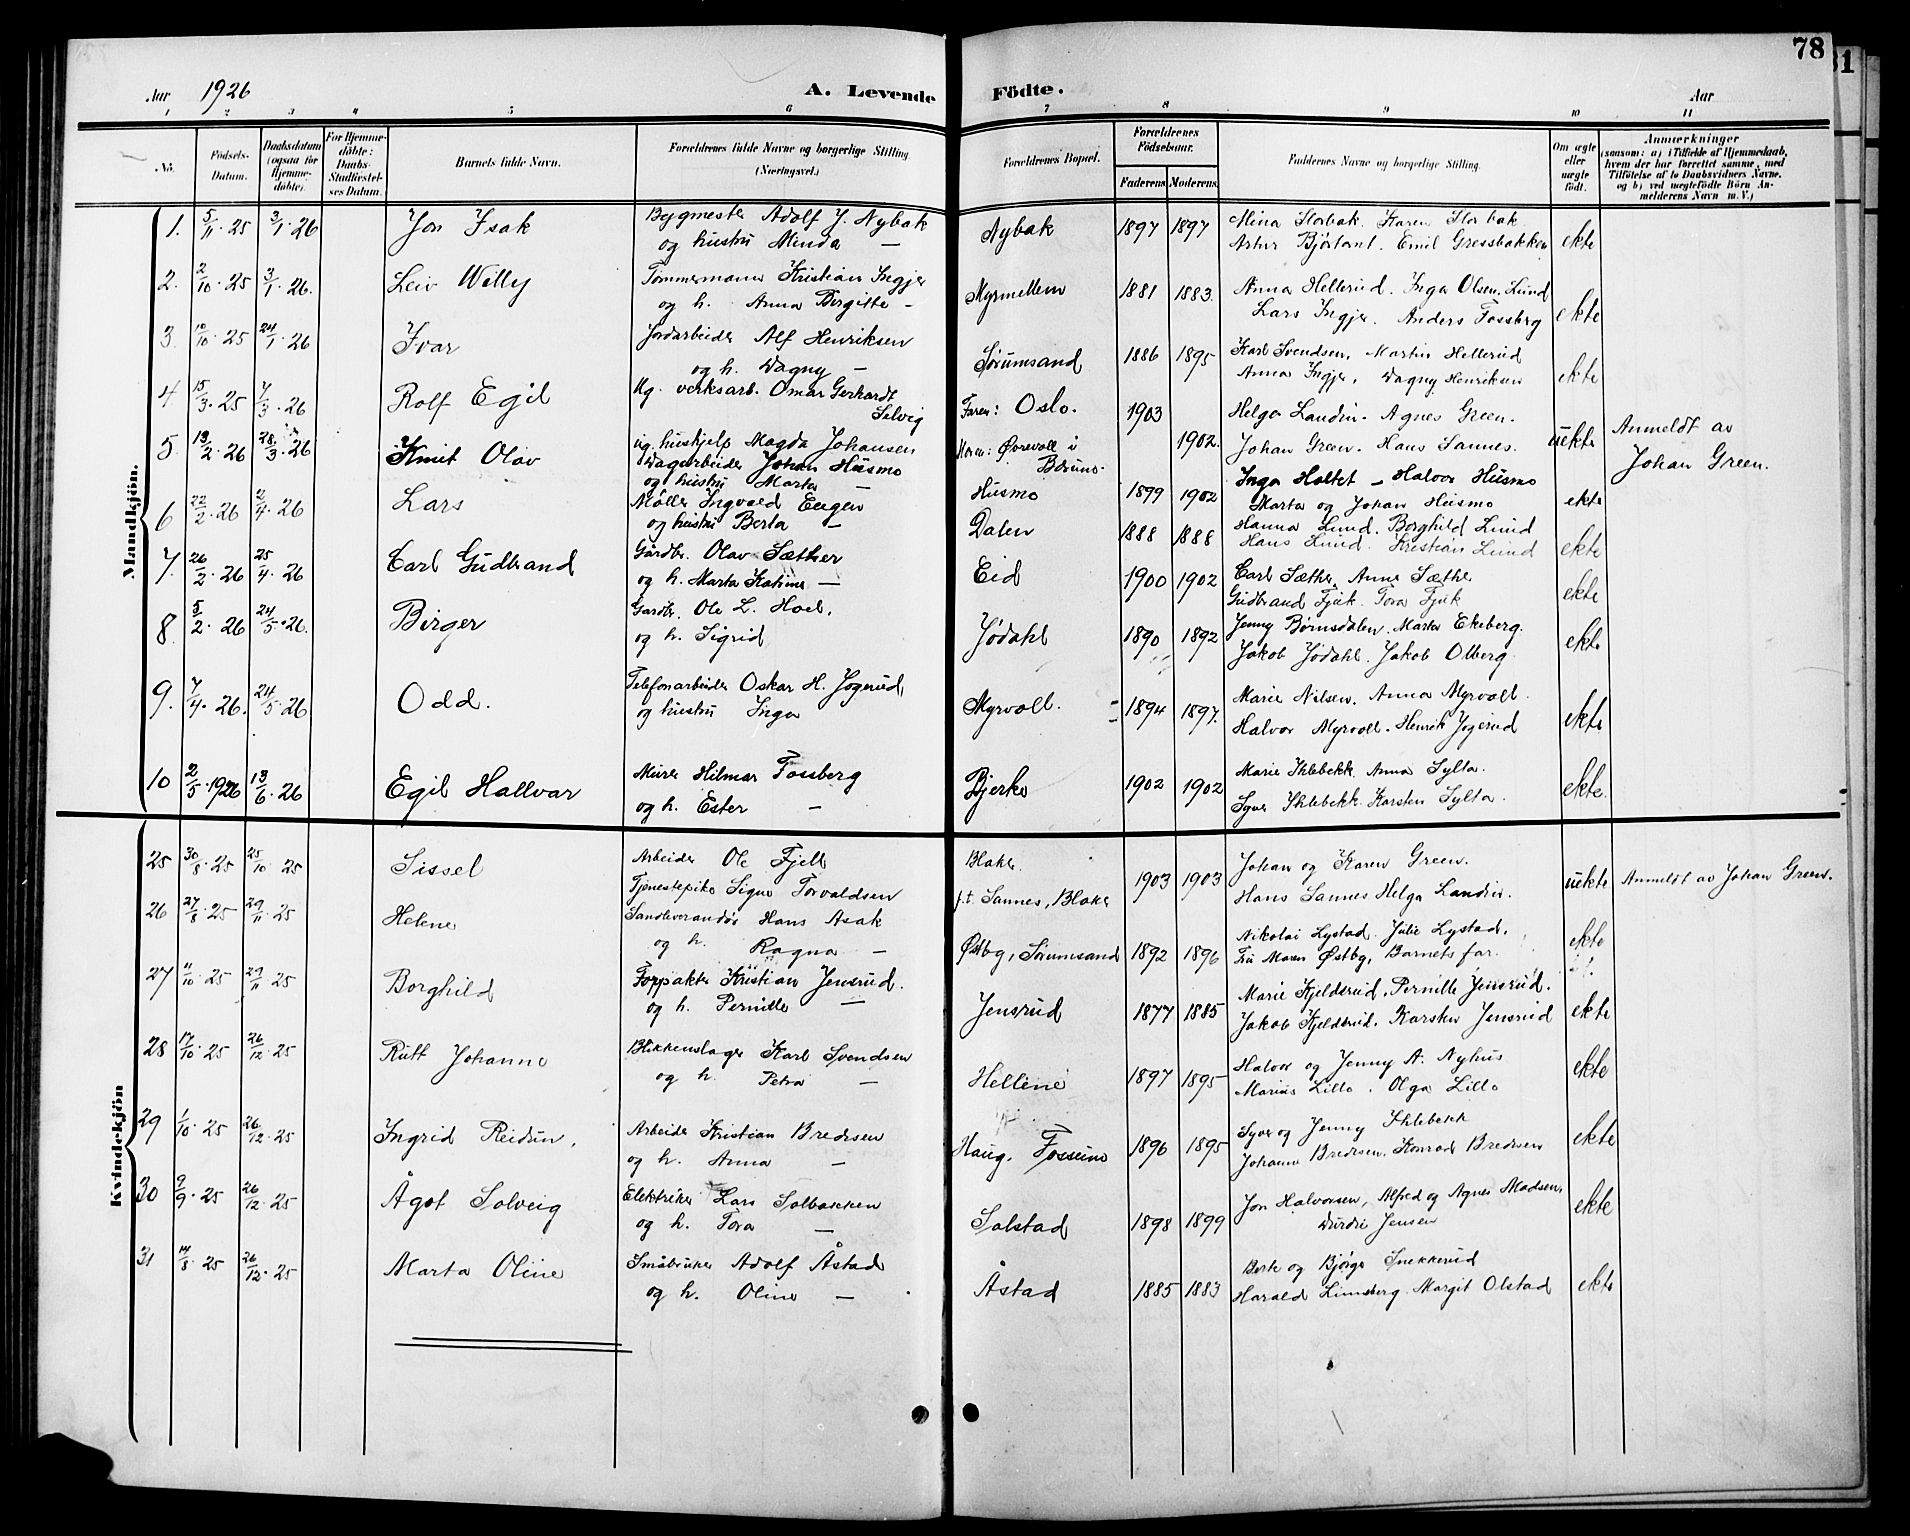 78
31
Aar 1926
A. Levende Födte.
Aar
1 2 3 4 5 6 7 8 9 10 11
No.
Födsels-Datum.
Daabsdatum (ogsaa for Hjemme-döbte).
For Hjemme-döbte: Daabs-Stadfæstel-ses Datum.
Barnets fulde Navn.
Forældrenes fulde Navne og borgerlige Stilling. (Næringsvei.)
Forældrenes Bopæl.
Forældrenes Födselsaar.
Faderens. Moderens.
Faddernes Navne og borgerlige Stilling.
Om ægte eller uægte födt.
Anmærkninger
(saasom: a) i Tilfælde af Hjemmedaab, hvem der har forrettet samme, med Tilföielse af to Daabsvidners Navne, og b) ved uægtefödte Börn An-melderens Navn m. V.)
Mandkjön.
1. 5/11. 25 3/1. 26 Jon Isak Bygmester Adolf J. Nybak Nybak 1897 1897 Mina Storbak. Karen Storbak ekte
og hustru Minda — Artur Bjørtomt. Emil Gressbakken
2. 2/10. 25 3/1. 26. Leiv Willy Tømmermann Kristian Ingjer Myrmellem 1881 1883. Anna Hellerud. Inga Olsen. Lund
og h. Anna Birgitte — Lars Ingjer. Anders Fossberg ekte
3. 10/10. 25 24/1. 26 Ivar Jordarbeider Alf Henriksen Sørumsand 1886 1895 Karl Svendsen, Martin Hellerud
og h. Dagny — Anna Ingjer, Dagny Henriksen ekte
4 15/3. 25 7/3. 26 Rolf Egil Ug. verksarb. Omar Gerhardt Selvig Faren: Oslo. 1903 Helga Landin. Agnes Green.
5. 13/2. 26 28/3. 26 Knut Olav ug. huskjelp Magda Johansen Moren: Øvrevoll i Bærum. 1902. Johan Green. Hans Sannes. uekte Anmeldt av Johan Green.
Dagarbeider Johan Husmo
og hustru Marta — Husmo 1899 1902 Inga Holtet — Halvor Husmo
Marta og Johan Husmo ekte
6 22/2. 26 2/4. 26 Lars Møller Ingvald Engen Dalen 1888 1888 Hanna Lund. Borghild Lund
og hustru Berta — Hans Lund. Kristian Lund ekte
7. 26/2. 26 25/4. 26 Carl Gudbrand Gårdbr. Olav Sæther Eid 1900 1902 Carl Sæther, Anna Sæther
og h. Marta Katrine — Gudbrand Fjuk. Tora Fjuk ekte
8. 5/2. 26 24/5. 26. Birger Gardbr. Ole L. Hoel. Jødahl 1890 1892 Jenny Børnsdalen. Marta Ekeberg.
og h. Sigrid Jakob Jødahl. Jakob Olberg ekte
9. 7/4. 26. 24/5. 26 Odd. Telefonarbeider Oskar H. Jogerud, Myrvoll. 1894 1897. Marie Nilsen. Anna Myrvoll.
og hustru Inga Halvor Myrvoll. Henrik Jogerud ekte
10 2/5. 1926 13/6. 26 Egil Hallvar Murer Hilmar Fossberg Bjerke 1902 1902 Marie Ihlebekk. Anna Sylta.
og h. Ester — Syver Ihlebekk. Karsten Sylta. ekte.
Kvindekjön
25 30/8. 25 25/10 25 Sissel Arbeider Ole Fjell Blaker 1903 1903 Johan og Karen Green. uekte Anmeldt av Johan Green.
Tjenestepike Signe Torvaldsen f.t. Sannes, Blaker Hans Sannes Helga Landin.
26 27/8. 25 29/11. 25 Helene Sandleverandør Hans Asak Østbg, Sørumsand 1892 1896 Nikolai Lystad. Julie Lystad, ekte
og h. Ragna — Fru Maren Østbg, Barnets far.
27 11/10. 25 29/11 25 Borghild Forpakter Kristian Jensrud. Jensrud 1877 1885 Marie Kjeldsrud, Pernille Jensrud.
og h. Pernille — Jakob Kjeldsrud. Karsten Jensrud ekte
28 17/10. 25 26/12. 25 Rutt Johanne Blikkenslager Karl Svendsen Hellene 1897 1895 Halvor og Jenny A. Nyhus ekte
og h. Petra — Marius Lillo. Olga Lillo
29 1/10. 25 26/12. 25 Ingrid Reidun, Arbeider Kristian Bredesen Haug, Fossum 1896 1895 Syver og Jenny Ihlebekk
og h. Anna — Johanne Bredesen. Konrad Bredesen ekte
30 9/9. 25 26/12. 25 Ågot Solveig Elektriker Lars Solbakken Solstad 1898 1899 Jon Halvorsen, Alfred og Agnes Madsen,
og h. Tora — Durdei Jensen ekte
31 14/8. 25 26/12. 25 Marta Oline Småbruker Adolf Åstad Åstad 1885 1883 Berte og Bjørge Snekkerud
og h. Oline — Harald Linneberg. Margit Olstad ekte